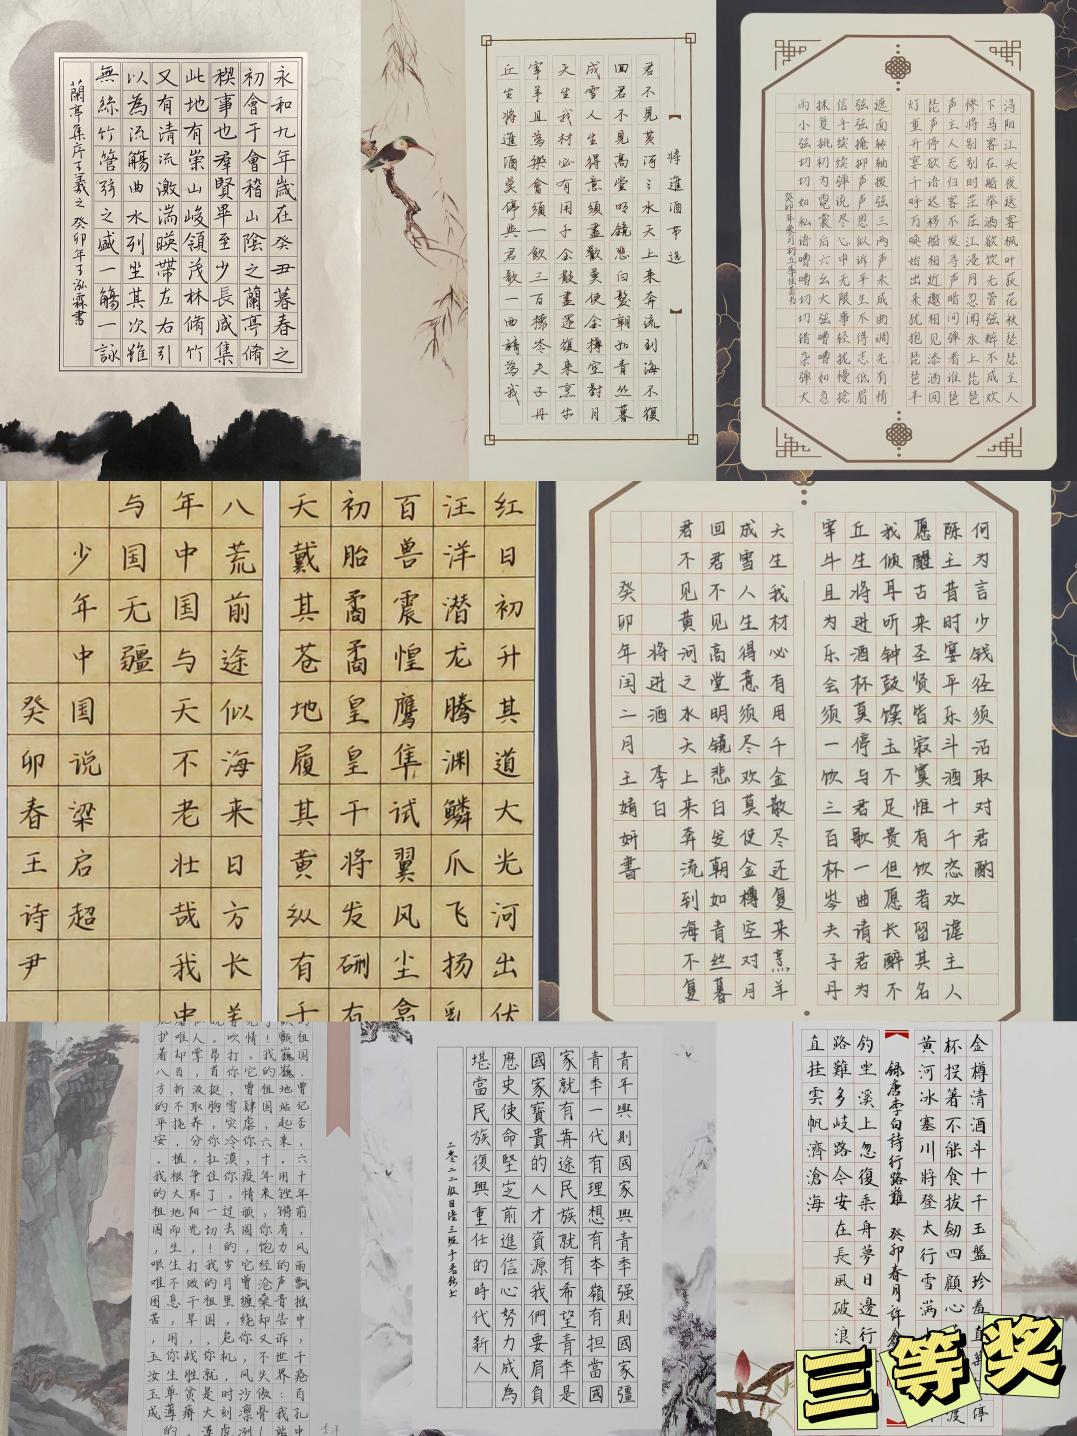 永和九年歲在癸丑暮春之
初會于會稽山陰之蘭亭脩
稧事也羣賢畢至少長咸集
此地有崇山峻領茂林脩竹
又有清流激湍暎帶左右引
以為流觴曲水列坐其次雖
無絲竹管弦之盛一觴一詠
蘭亭集序王羲之 癸卯年于泓霖書
【 將進酒节选 】
君不見黃河之水天上來奔流到海不復
回君不見高堂明鏡悲白髮朝如青丝暮
成雪人生得意須盡歡莫使金樽空對月
天生我材必有用千金散盡還復來烹牛
宰羊且為樂會須一飲三百杯岑夫子丹
丘生將進酒莫停與君歌一曲請為我
浔阳江头夜送客枫叶荻花秋瑟瑟主人
下马客在船举酒欲饮无管弦醉不成欢
惨将别别时茫茫江浸月忽闻水上琵琶
声主人忘归客不发寻声暗问弹者谁琵
琶声停欲语迟移船相近邀相见添酒回
灯重开宴千呼万唤始出来犹抱琵琶半
遮面转轴拨弦三两声未成曲调先有情
弦弦掩抑声声思似诉平生不得志低眉
信手续续弹说尽心中无限事轻拢慢捻
抹复挑初为霓裳后六幺大弦嘈嘈如急
雨小弦切切如私语嘈嘈切切错杂弹大
红日初升其道大光河出伏
汪洋潜龙腾渊鳞爪飞扬乳
百兽震惶鹰隼试翼风尘翕
初胎矞矞皇皇干将发硎有
天戴其苍地履其黄纵有千
八荒前途似海来日方长美
年中国与天不老壮哉我中
与国无疆
少年中国说梁启超
癸卯春王诗尹
何为言少钱径须沽取对君酌
陈王昔时宴平乐斗酒十千恣欢谑主人
愿醒古来圣贤皆寂寞惟有饮者留其名
我倾耳听钟鼓馔玉不足贵但愿长醉不
丘生将进酒杯莫停与君歌一曲请君为
宰牛且为乐会须一饮三百杯岑夫子丹
天生我材必有用千金散尽还复来烹羊
成雪人生得意须尽欢莫使金樽空对月
回君不见高堂明镜悲白发朝如青丝暮
君不见黄河之水天上来奔流到海不复
将进酒 李白
癸卯年闰二月王婧妍書
的祖国,曾记否,六十年前,风雨飘摇中,千疮百孔
颤巍巍地站起来。用铿锵有力的声音告诉世界:我
!我的祖国,六十年来,你饱经沧桑却又不失傲骨!
情,它曾肆虐你,疫情顽固,它曾缠绕你,风沙凛冽
吹打你,雪灾冷漠你,过去的岁月里,危机时刻
昂首挺胸,你扛住了一切!我的祖国,你就是大漠
掌,汲取养分,争取阳光,打败干旱,战胜贫瘠,
难却百折不挠,植根大地而生生不息,用你单薄的
护着八方的平安。我的祖国,艰难困苦,玉汝玉成
青年興則國家興青年强則國家彊
青年一代有理想有本領有担當國
家就有前途民族就有希望青年是
國家寶貴的人才資源我們要肩負
歷史使命堅定前進信心努力成為
堪當民族復興重任的時代新人
金樽清酒斗十千玉盤珍羞直
杯投箸不能食拔劍四顧心
黃河冰塞川將登太行雪满
錄唐李白詩行路難 癸卯春月許
釣坐溪上忽復乘舟夢日邊行
路難多岐路今安在長風破浪
直挂雲帆濟滄海
三等奖